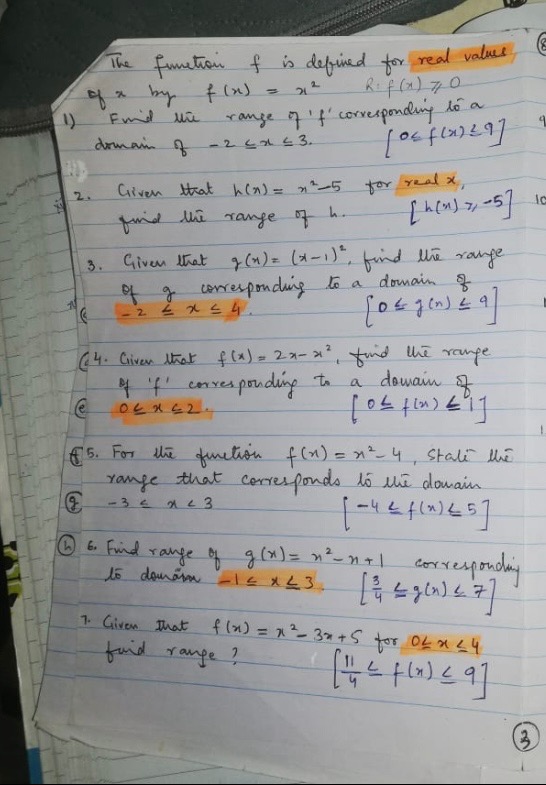 The function f is defined for real values
of x by f(x) = x² R: f(x) ⩾ 0
1) Find the range of 'f' corresponding to a
domain of -2 ≤ x ≤ 3. [0≤ f(x) ≤ 9]
2. Given that h(x) = x²-5 for real x,
find the range of h. [h(x) ⩾ -5]
3. Given that g(x) = (x-1)², find the range
of g corresponding to a domain of
-2 ≤ x ≤ 4. [0 ≤ g(x) ≤ 9]
4. Given that f(x) = 2x-x², find the range
of 'f' corresponding to a domain of
0 ≤ x ≤ 2. [0 ≤ f(x) ≤ 1]
5. For the function f(x) = x²-4, State the
range that corresponds to the domain
-3 ≤ x ≤ 3 [-4 ≤ f(x) ≤ 5]
6. Find range of g(x) = x²-x+1 corresponding
to domain -1 ≤ x ≤ 3. [3/4 ≤ g(x) ≤ 7]
7. Given that f(x) = x²-3x+5 for 0≤ x ≤ 4
find range? [11/4 ≤ f(x) ≤ 9]
3